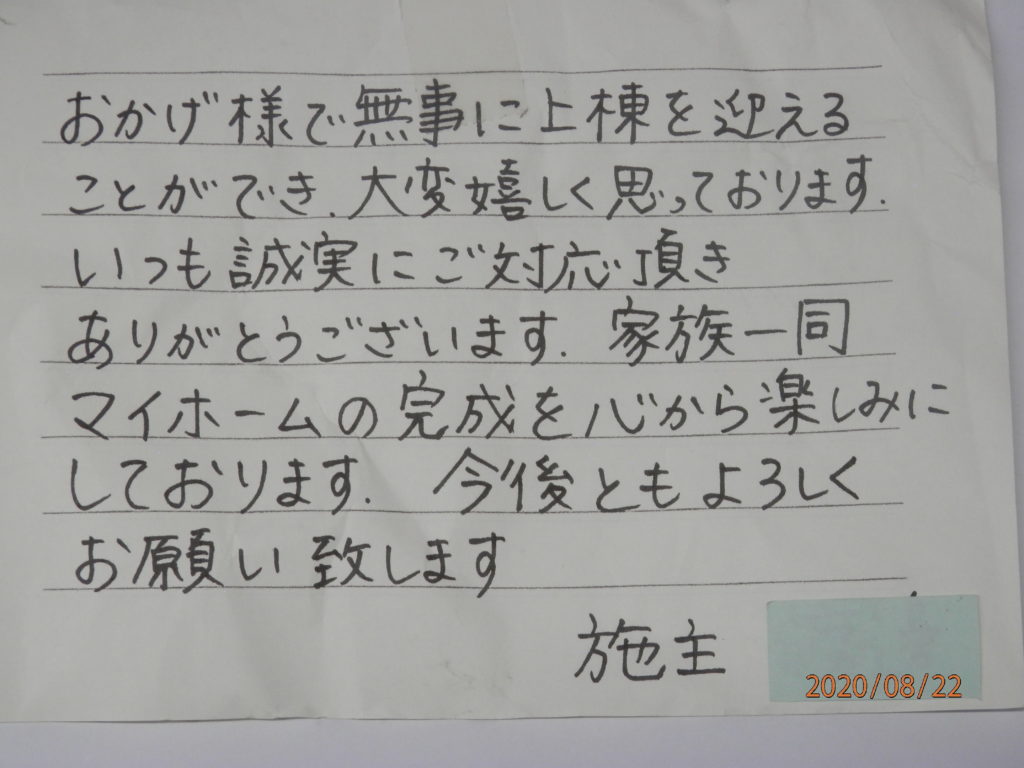 おかげ様で無事に上棟を迎える
ことができ、大変嬉しく思っております.
いつも誠実にご対応頂き
ありがとうございます. 家族一同
マイホームの完成を心から楽しみに
しております. 今後ともよろしく
お願い致します
施主
2020/08/22